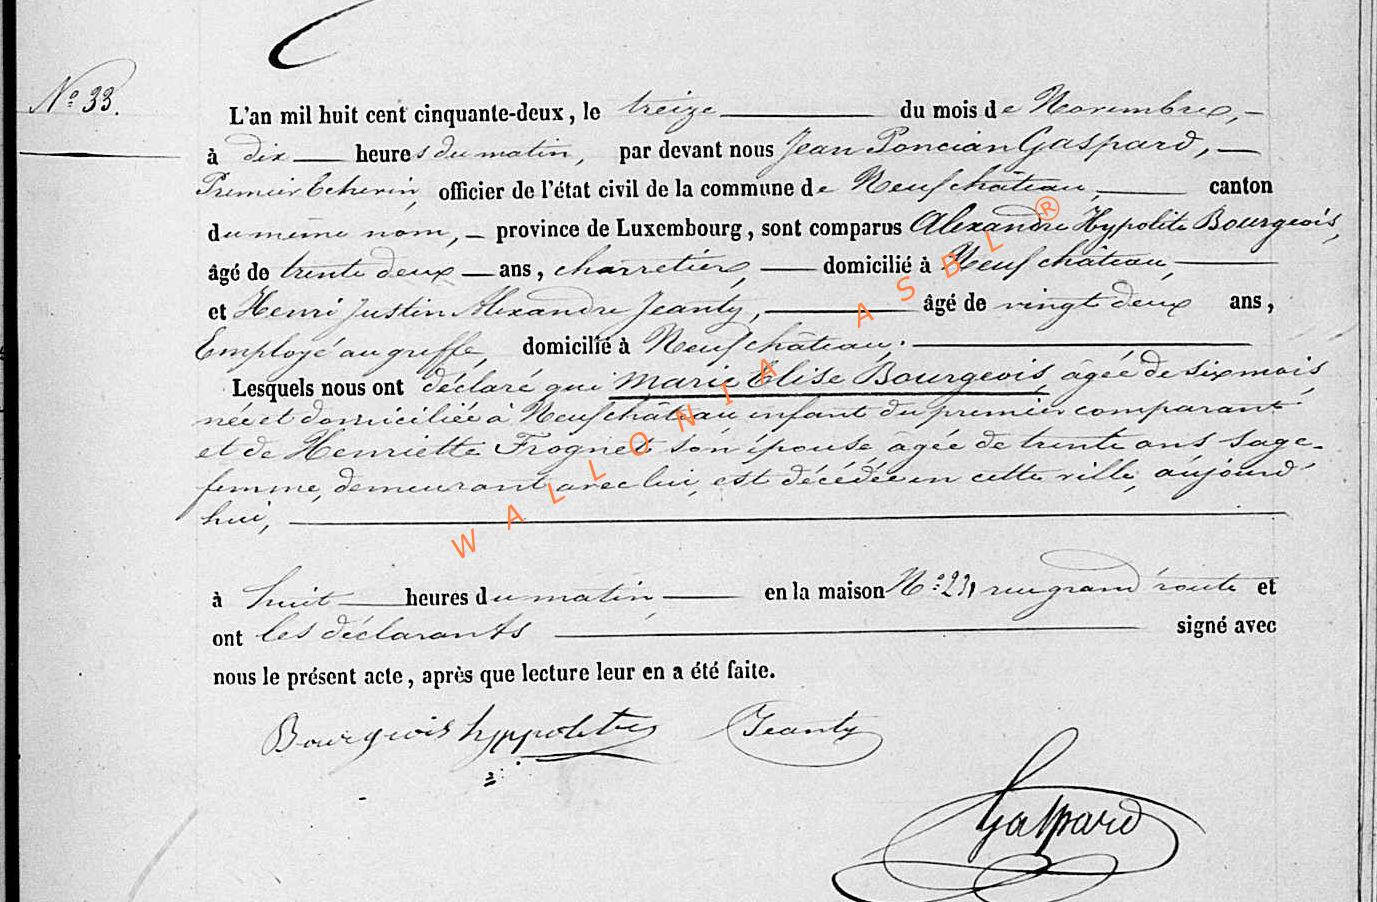 N.º 33.
L'an mil huit cent cinquante-deux, le treize du mois de Novembre,
à dix heures du matin, par devant nous Jean Poncian Gaspard,
Premier Echevin, officier de l'état civil de la commune de Neufchâteau, canton
du même nom, province de Luxembourg, sont comparus Alexandre Hypolite Bourgeois,
âgé de trente deux ans, charretier, domicilié à Neufchâteau,
et Henri Justin Alexandre Jeanty, âgé de vingt deux ans,
Employé au greffe, domicilié à Neufchâteau.
Lesquels nous ont déclaré que Marie Elise Bourgeois, âgée de six mois,
née et domiciliée à Neufchâteau enfant du premier comparant
et de Henriette Frognet son épouse, âgée de trente ans sage-
femme, demeurant avec lui, est décédée en cette ville, aujourd'
hui,
à huit heures du matin, en la maison N.º 23, rue grand'route et
ont les déclarants signé avec
nous le présent acte, après que lecture leur en a été faite.
Bourgeois hyppolite Jeanty
Gaspard
WALLONIA ASBL ®